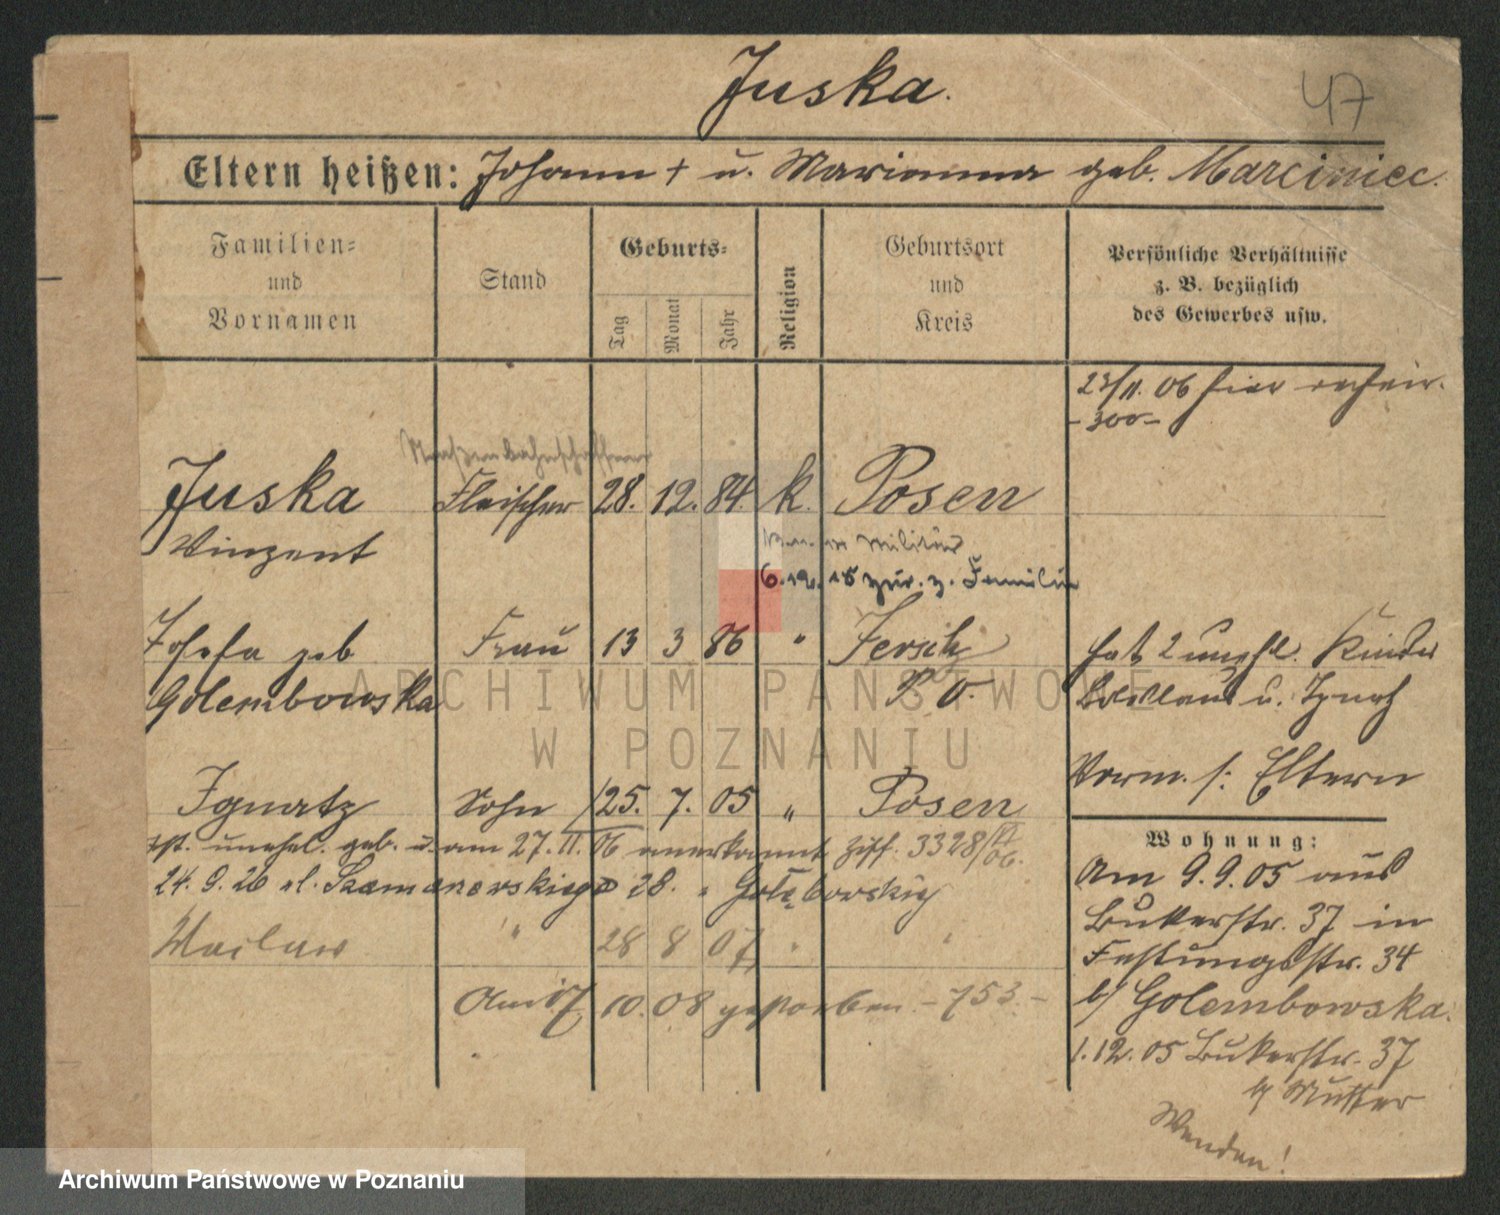 Juska.
47
Eltern heißen: Johann + u. Marianna geb. Marciniec.
Familien=
und
Vornamen
Stand
Geburts=
Tag
Monat
Jahr
Religion
Geburtsort
und
Kreis
Persönliche Verhältnisse
z. B. bezüglich
des Gewerbes usw.
23/11. 06 hier
- 300 -
Straßenbahnschaffner
Juska Fleischer 28. 12. 84. k. Posen
Vinzent
Militär
6.12.15 zur. z. Familie
Josefa geb Frau 13 3 86 " Jersitz
Golembowska P. O.
hat 2 unehl. Kinder
Boleslaus u. Ignatz
Vorm. s: Eltern
Ignatz Sohn 25. 7. 05 " Posen
ist unehel. geb. u. am 27. 11. 06 anerkannt Ziff. 3328/06.
24. 9. 26 28. "
Waclaw " 28 8 07 " "
Am 17 10. 08 gestorben - 753. -
Wohnung:
Am 9.9.05 aus
Bukerstr. 37 in
Festungsstr. 34
b/ Golembowska.
1.12.05 Bukerstr. 37
b/ Mutter
Wenden!
ARCHIWUM PAŃSTWOWE
W POZNANIU
Archiwum Państwowe w Poznaniu